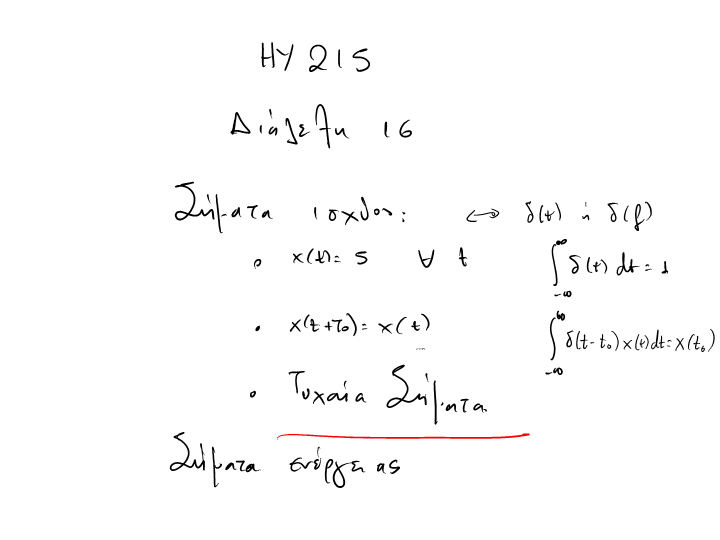 ΗΥ 215
Διάλεξη 16
Σήματα ισχύος: ↔ δ(t) ή δ(f)
• x(t) = 5 ∀ t
∫_{-∞}^{∞} δ(t) dt = 1
• x(t+T₀) = x(t)
∫_{-∞}^{∞} δ(t-t₀) x(t) dt = x(t₀)
• Τυχαία Σήματα
Σήματα ενέργειας